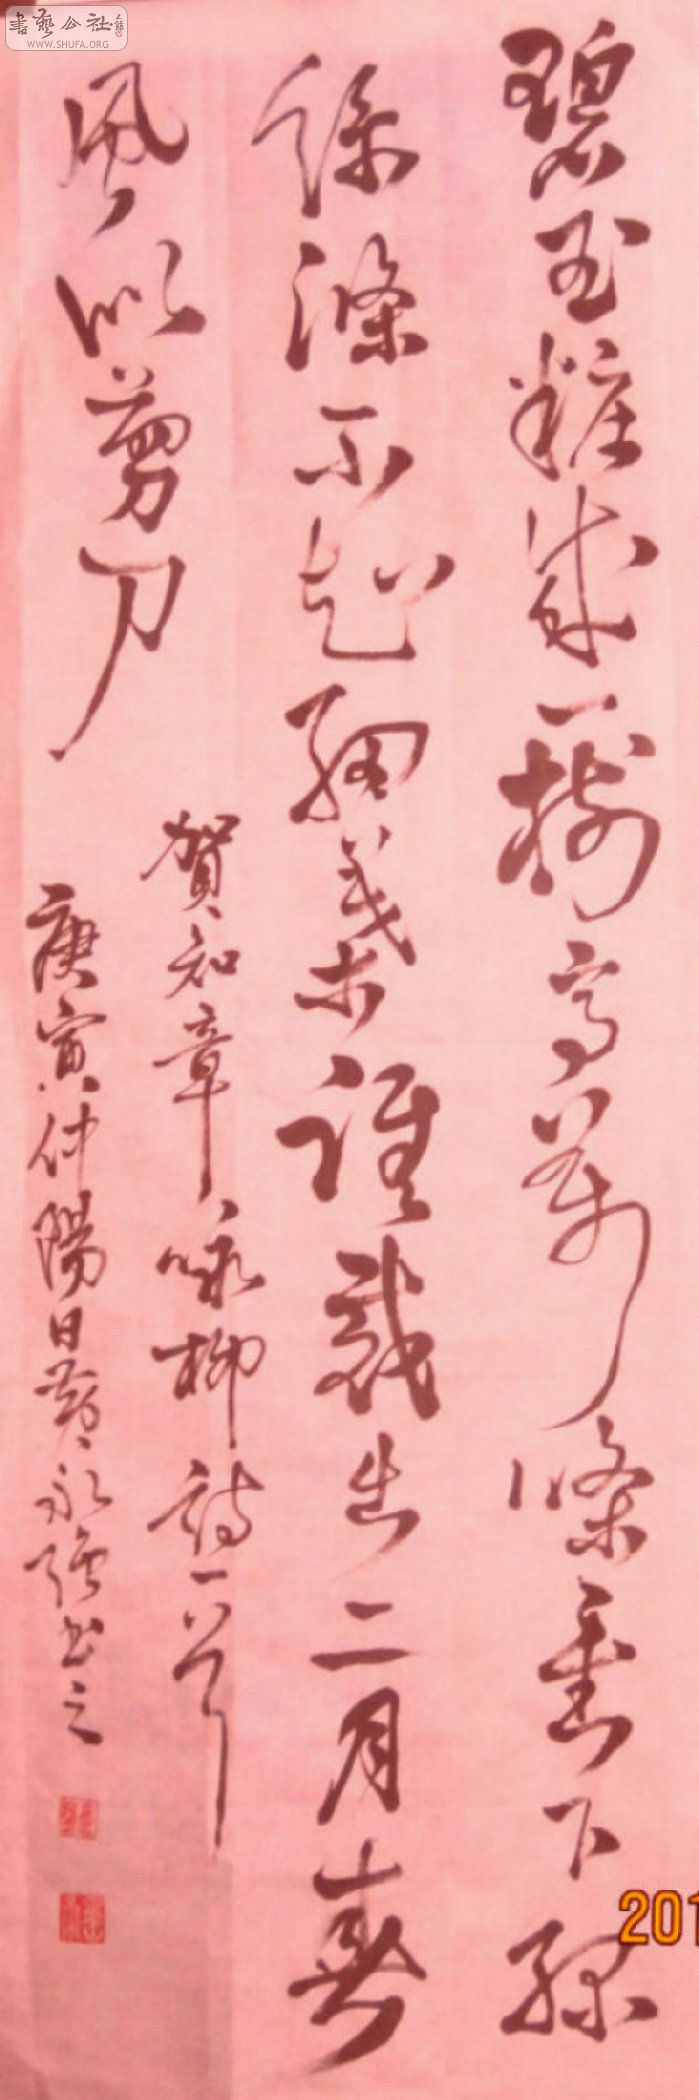 碧玉粧成一樹高萬條垂下綠
絲絛不知細葉誰裁出二月春
風似剪刀
賀知章咏柳詩一首
庚寅仲陽日黃永強書之
書藝公社
WWW.SHUFA.ORG
201